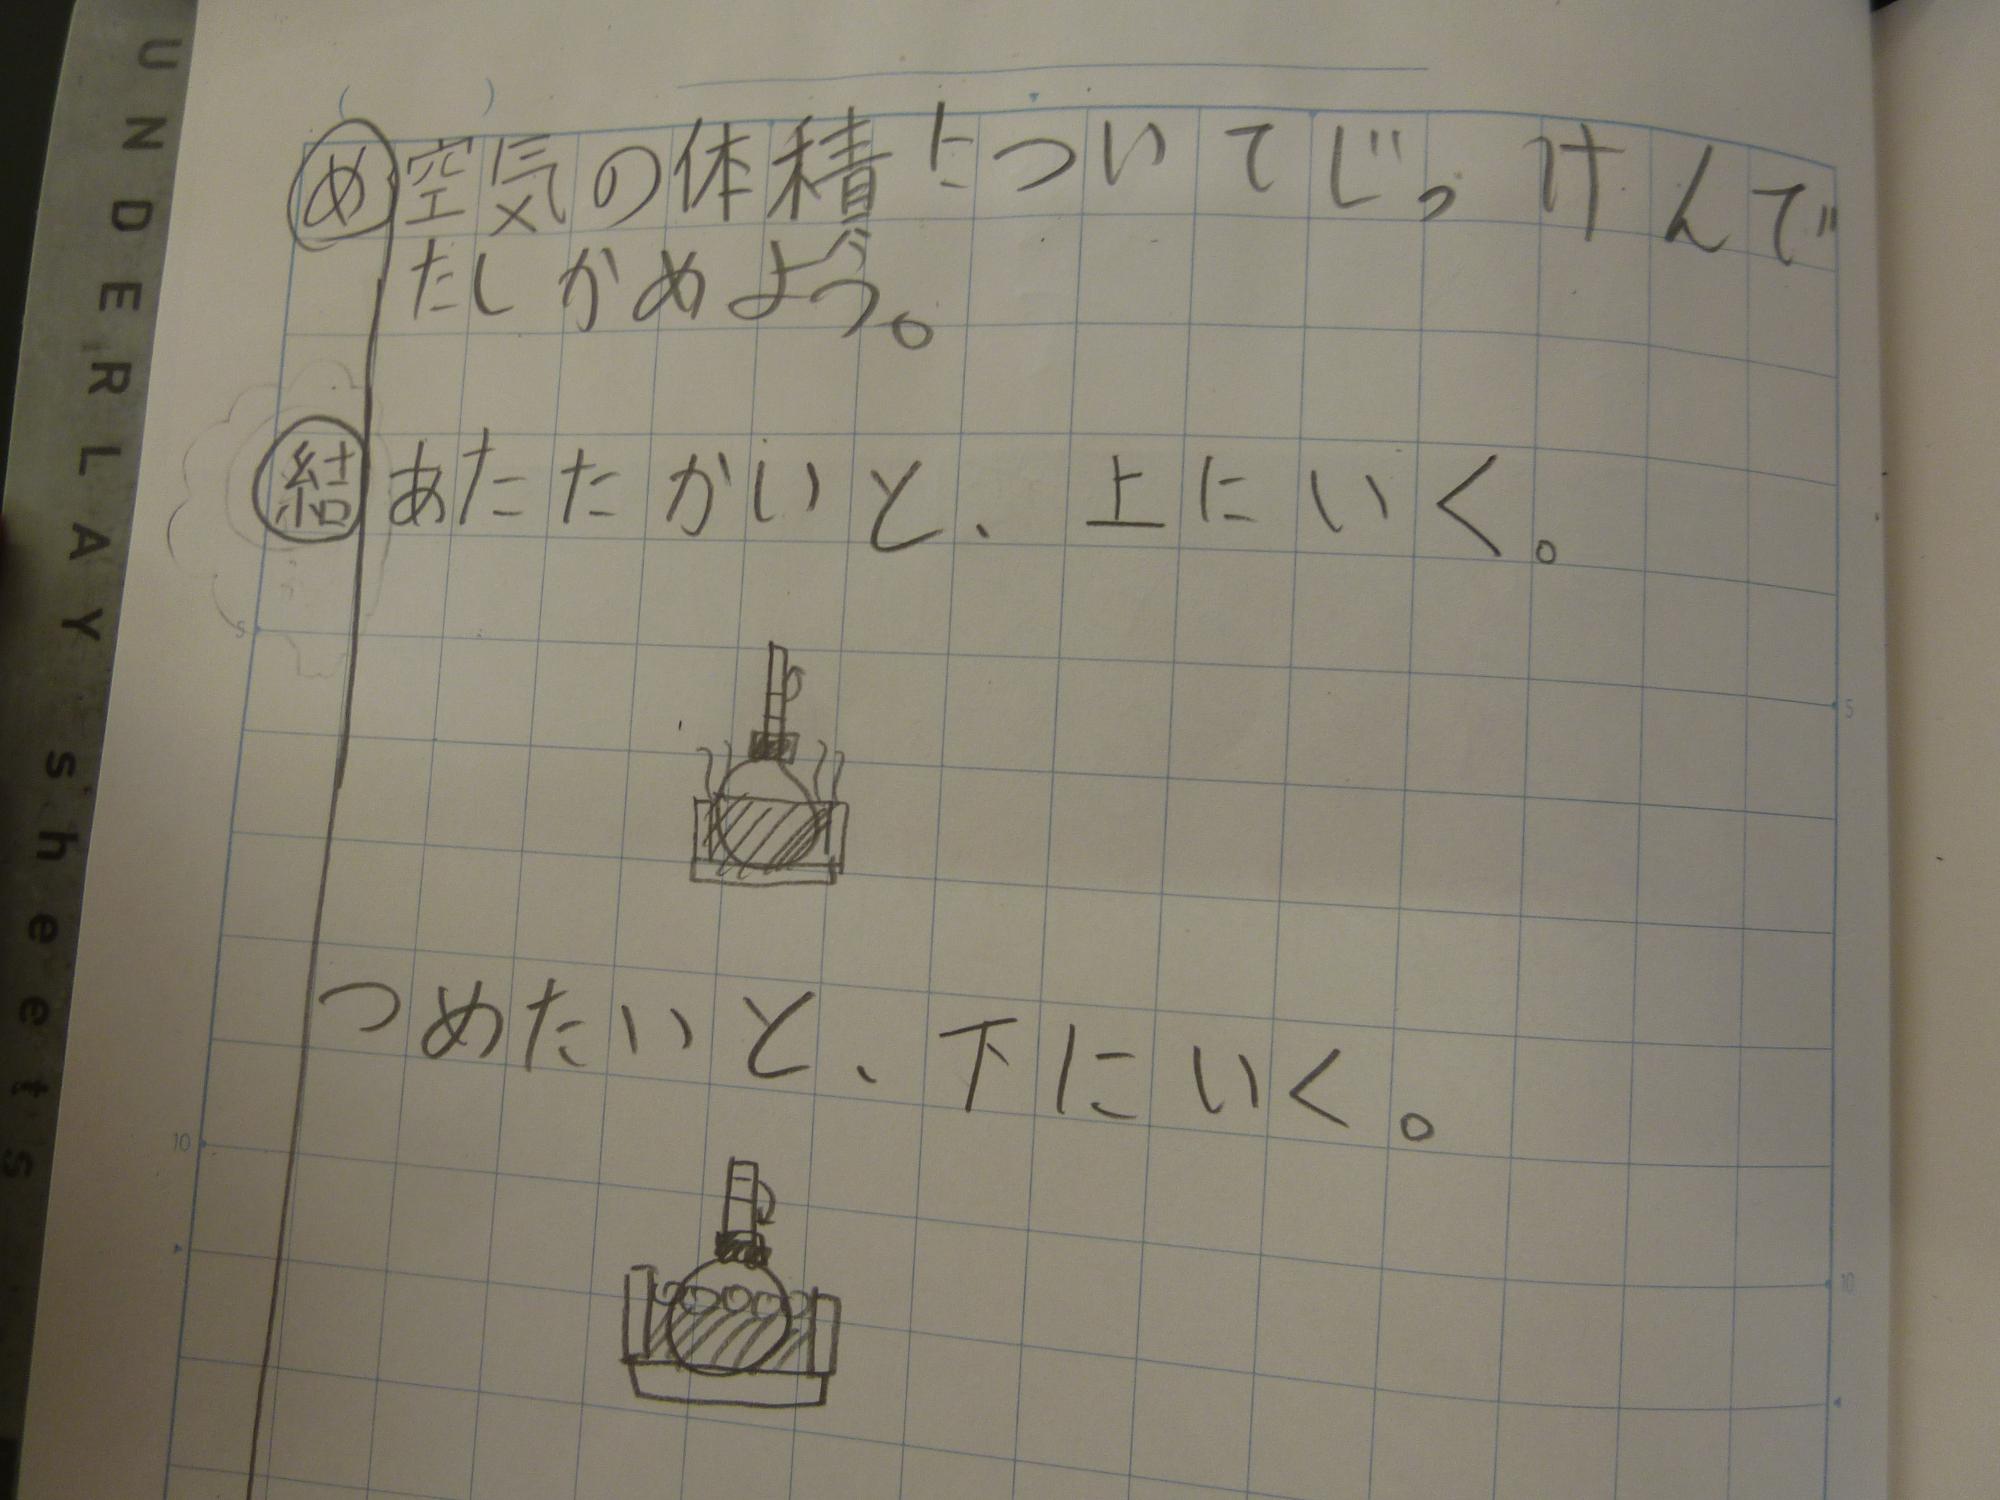 め 空気の体積についてじっけんで
たしかめよう。
結 あたたかいと、上にいく。
5
5
つめたいと、下にいく。
10
10
UNDERLAY sheets